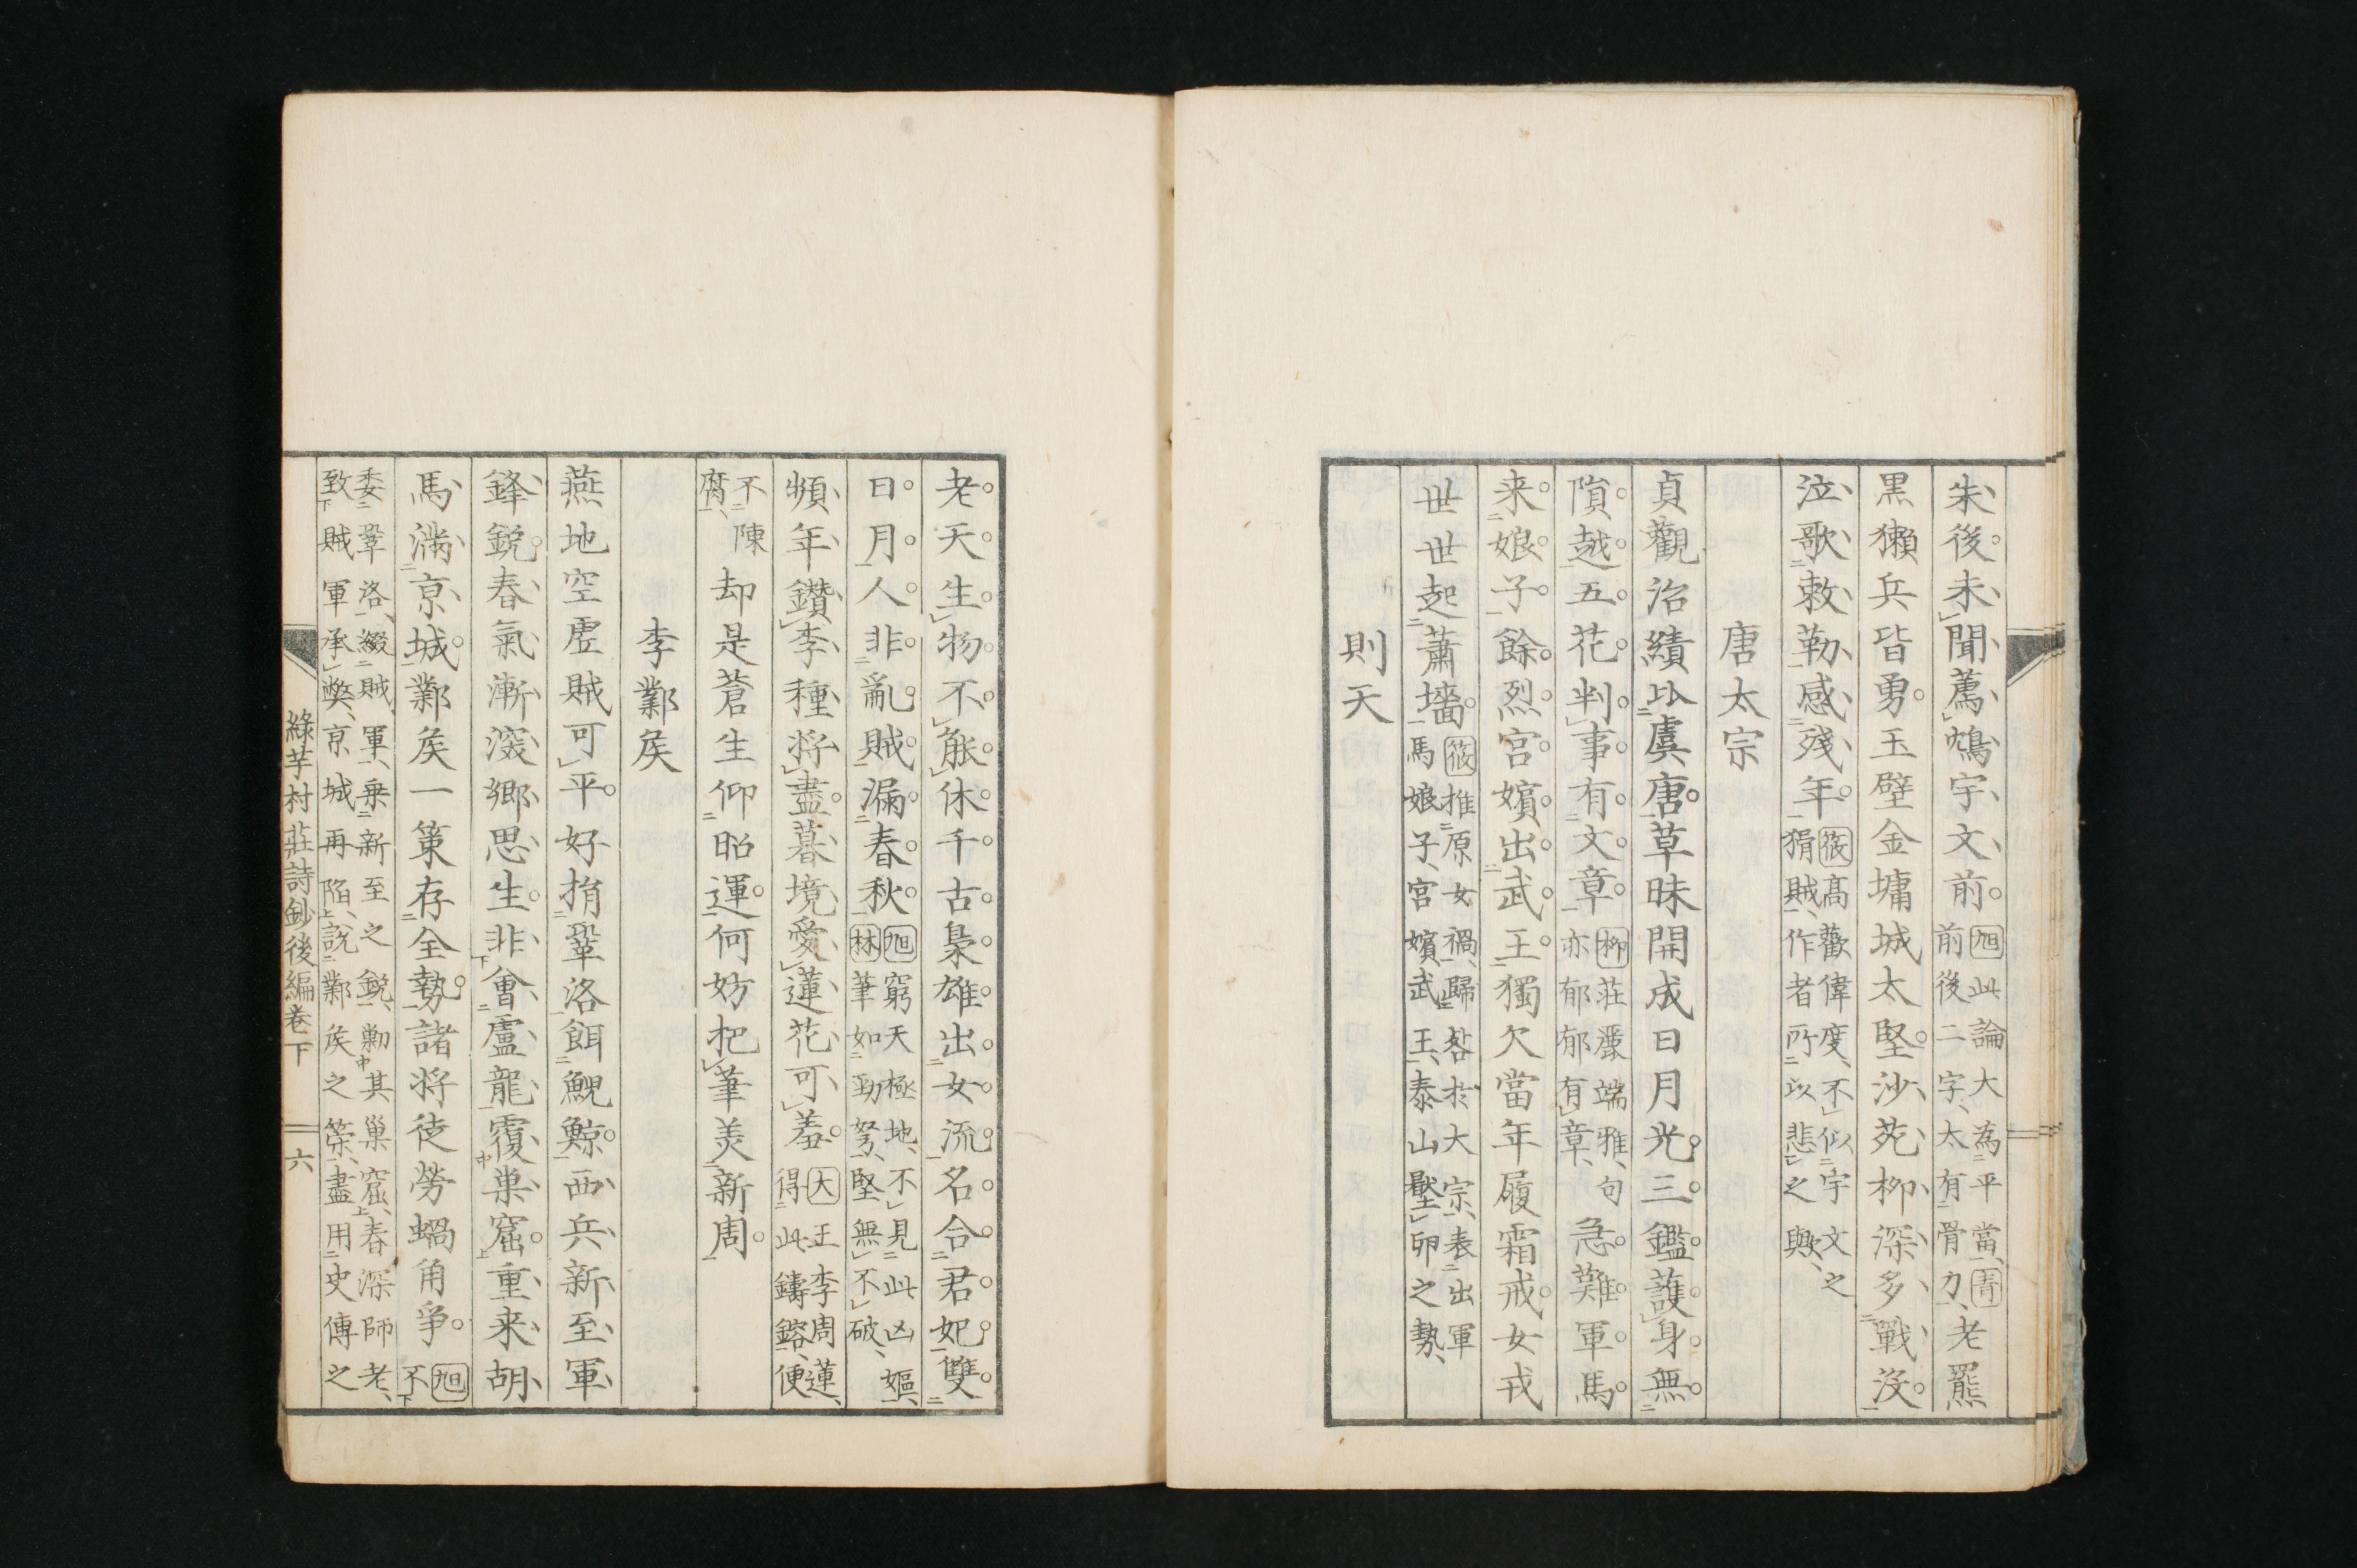 朱後未聞薦鴆宇文前旭此論大為平當青老羆
前後二字太有骨力
黒獺兵皆勇玉壁金墉城太堅沙苑柳深多戰没
泣歌敕勒感残年筱髙歡偉度不似宇文之
狷賊作者所以悲之歟
唐太宗
貞觀治績比虞唐草昧開成日月光三鑑護身無
隕越五花判事有文章柳莊嚴端雅句急難軍馬
亦郁郁有章
来娘子餘烈宮嬪出武王獨欠當年履霜戒女戎
世世起蕭墻筱推原女禍歸咎於大宗表出軍
馬娘子宮嬪武王泰山壓卵之勢
則天
老天生物不能休千古梟雄出女流名合君妃雙
日月人非亂賊漏春秋旭窮天極地不見此凶嫗
林筆如勁弩堅無不破
頻年鑽李種將盡暮境愛蓮花可羞大王李周蓮
得此鑄鎔便
不陳
腐却是蒼生仰昭運何妨把筆美新周
李鄴矦
燕地空虚賊可平好捐鞏洛餌鯢鯨西兵新至軍
鋒鋭春氣漸深郷思生非會盧龍覆巣窟重来胡
馬満京城鄴矦一策存全勢諸将徒勞蝸角爭旭
不
委鞏洛綴賊軍乗新至之鋭勦其巣窟春深師老
致賊軍承弊京城再陥説鄴矦之策盡用史傳之
緑芋村荘詩鈔後編巻下 六